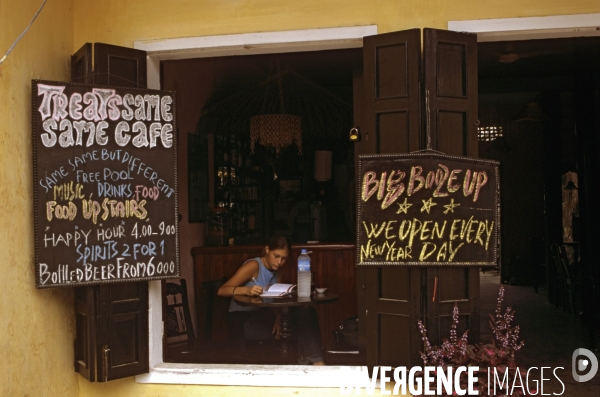 TReats SAMe
SAMe CAFE
SAME SAME BUT DIFFERENT
FREE POOL
MUSIC DRINKS FOOD
FOOD UPSTAIRS
HAPPY HOUR 4.00-9.00
SPIRITS 2 FOR 1
BOTTLED BEER FROM 6000
BIG BOOZE UP
WE OPEN EVERY
NEW YEAR DAY
DIVERGENCE IMAGES